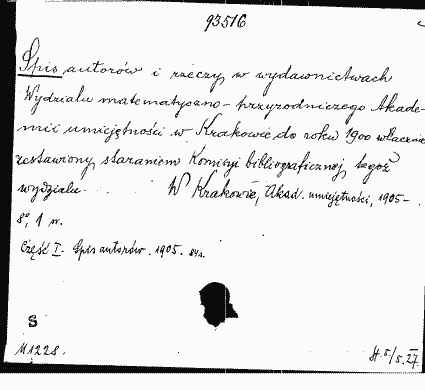 93516
Spis autorów i rzeczy w wydawnictwach
Wydziału matematyczno-przyrodniczego Akade-
mii umiejętności w Krakowie do roku 1900 włącznie
zestawiony staraniem Komisyi bibliograficznej tegoż
wydziału. W Krakowie, Akad. umiejętności, 1905-
8°, 1 w.
Część I. Spis autorów. 1905. 84 s.
S
M1228.
H. 5/5.27.